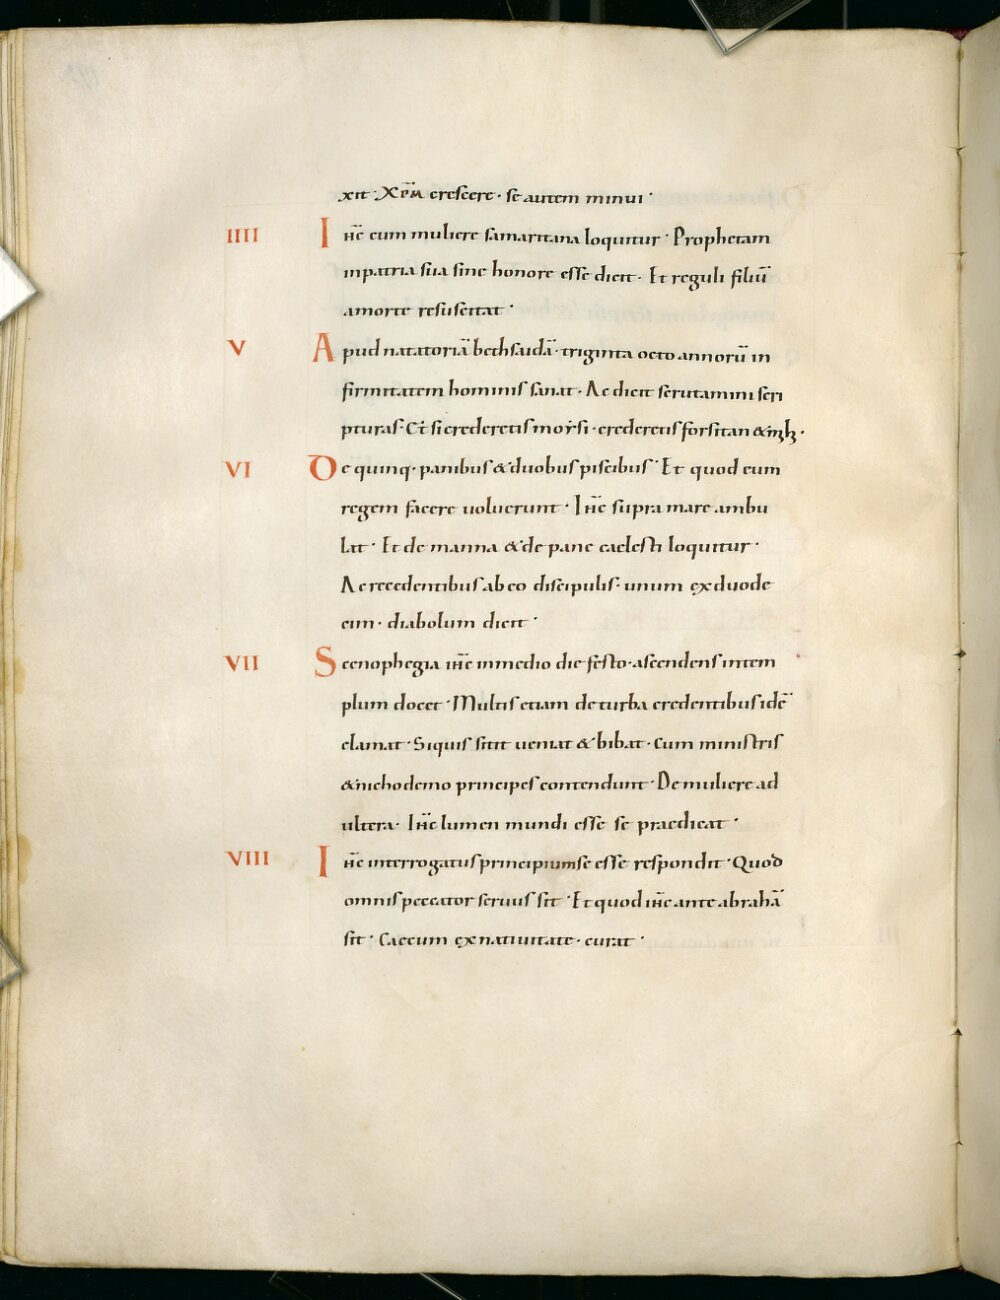 xit· XPM̅ crescere· se autem minui·
IIII Ih̅c cum muliere samaritana loquitur· Prophetam
inpatria sua sine honore esse dicit· Et reguli filiu̅
amorte resuscitat·
V Apud natatoria̅ bethsaida̅· triginta octo annoru̅ in
firmitatem hominis sanat· Ac dicit scrutamini scri
pturas· Et si crederetis moysi· crederetis forsitan &mihi·
VI De quinq· panibus &duobus piscibus· Et quod eum
regem facere uoluerunt· Ih̅c supra mare ambu
lat· Et de manna &de pane caelesti loquitur·
Ac recedentibus ab eo discipulis· unum ex duode
cim· diabolum dicit·
VII Scenophegia ih̅c inmedio die festo· ascendens intem
plum docet· Multis etiam de turba credentibus ide̅
clamat· Siquis sitit ueniat &bibat· Cum ministris
&nichodemo principes contendunt· De muliere ad
ultera· Ih̅c lumen mundi esse se praedicat·
VIII Ih̅c interrogatus principium se esse respondit· Quod
omnis peccator seruus sit· Et quod ih̅c ante abraha̅
sit· Caecum ex natiuitate· curat·